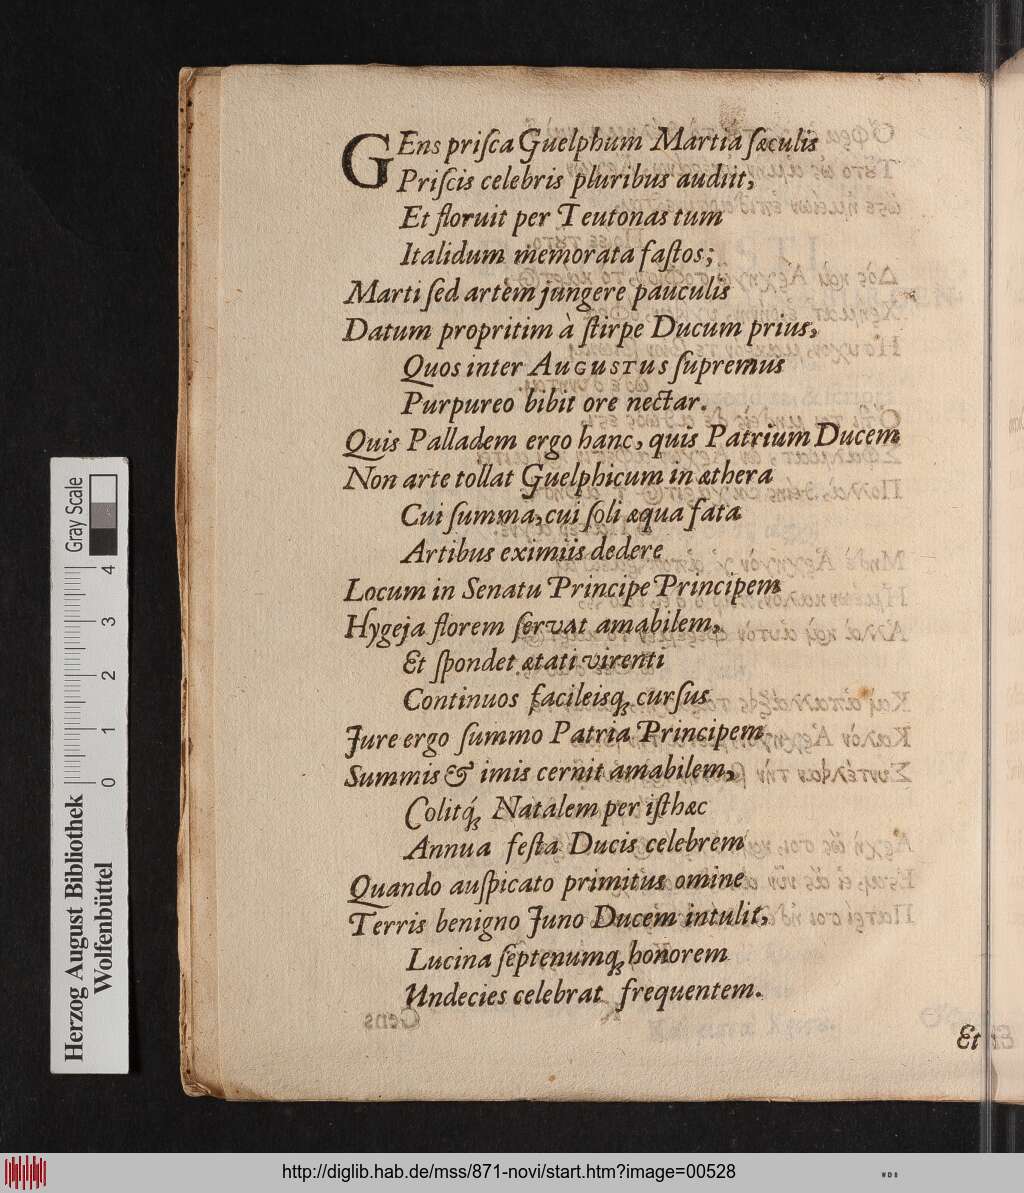 GEns priſca Guelphum Martia ſæculis
Priſcis celebris pluribus audiit,
Et floruit per Teutonas tum
Italidum memorata faſtos;
Marti ſed artem jungere pauculis
Datum propritim à ſtirpe Ducum prius,
Quos inter AUGUSTUS ſupremus
Purpureo bibit ore nectar.
Quis Palladem ergo hanc, quis Patrium Ducem
Non arte tollat Guelphicum in æthera
Cui ſumma, cui ſoli æqua fata
Artibus eximiis dedere
Locum in Senatu Principe Principem
Hygeja florem ſervat amabilem,
Et ſpondet ætati virenti
Continuos facileisq; curſus
Jure ergo ſummo Patria Principem
Summis & imis cernit amabilem,
Colitq́; Natalem per iſthæc
Annua feſta Ducis celebrem
Quando auſpicato primitus omine
Terris benigno Juno Ducem intulit,
Lucina ſeptenumq; honorem
Undecies celebrat frequentem.
Et
Herzog August Bibliothek
Wolfenbüttel
Gray Scale
0 1 2 3 4
http://diglib.hab.de/mss/871-novi/start.htm?image=00528